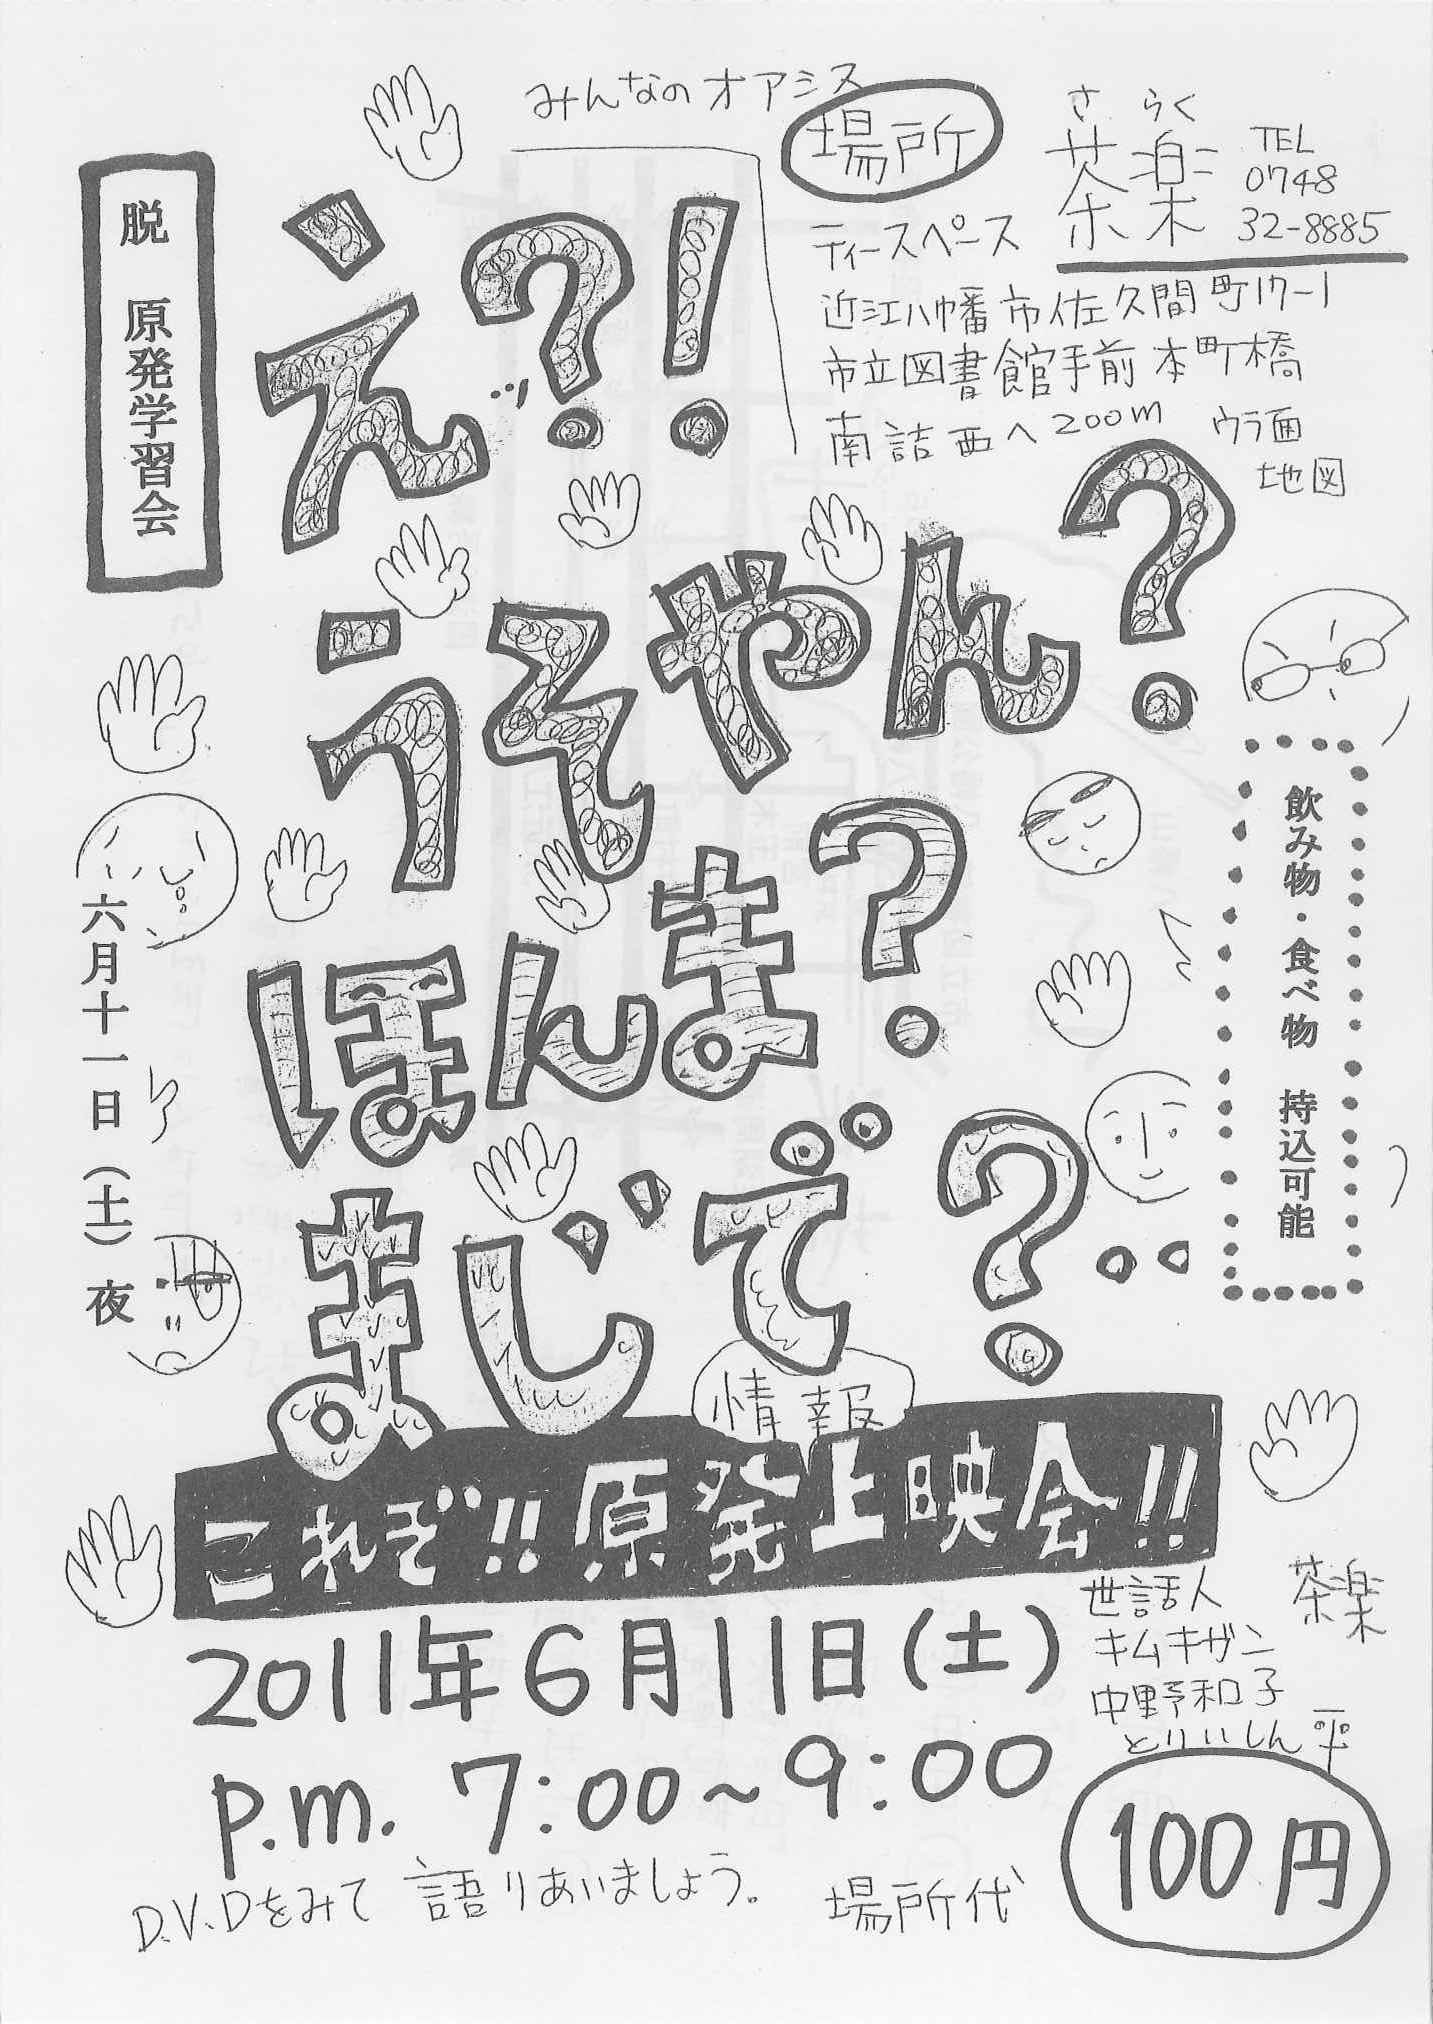 みんなのオアシス
場所
さらく
茶楽
TEL
0748
32-8885
ティースペース
近江八幡市佐久間町17-1
市立図書館手前 本町橋
南詰西へ200m ウラ面
地図
脱 原発学習会
え?!
うそやん?
ほんま?
まじで?
飲み物・食べ物 持込可能
六月十一日(土)夜
情報
これぞ!!原発上映会!!
2011年6月11日(土)
p.m. 7:00~9:00
D.V.Dをみて 語りあいましょう。
世話人 茶楽
キムキザン
中野和子
とりいしん平
場所代
100円